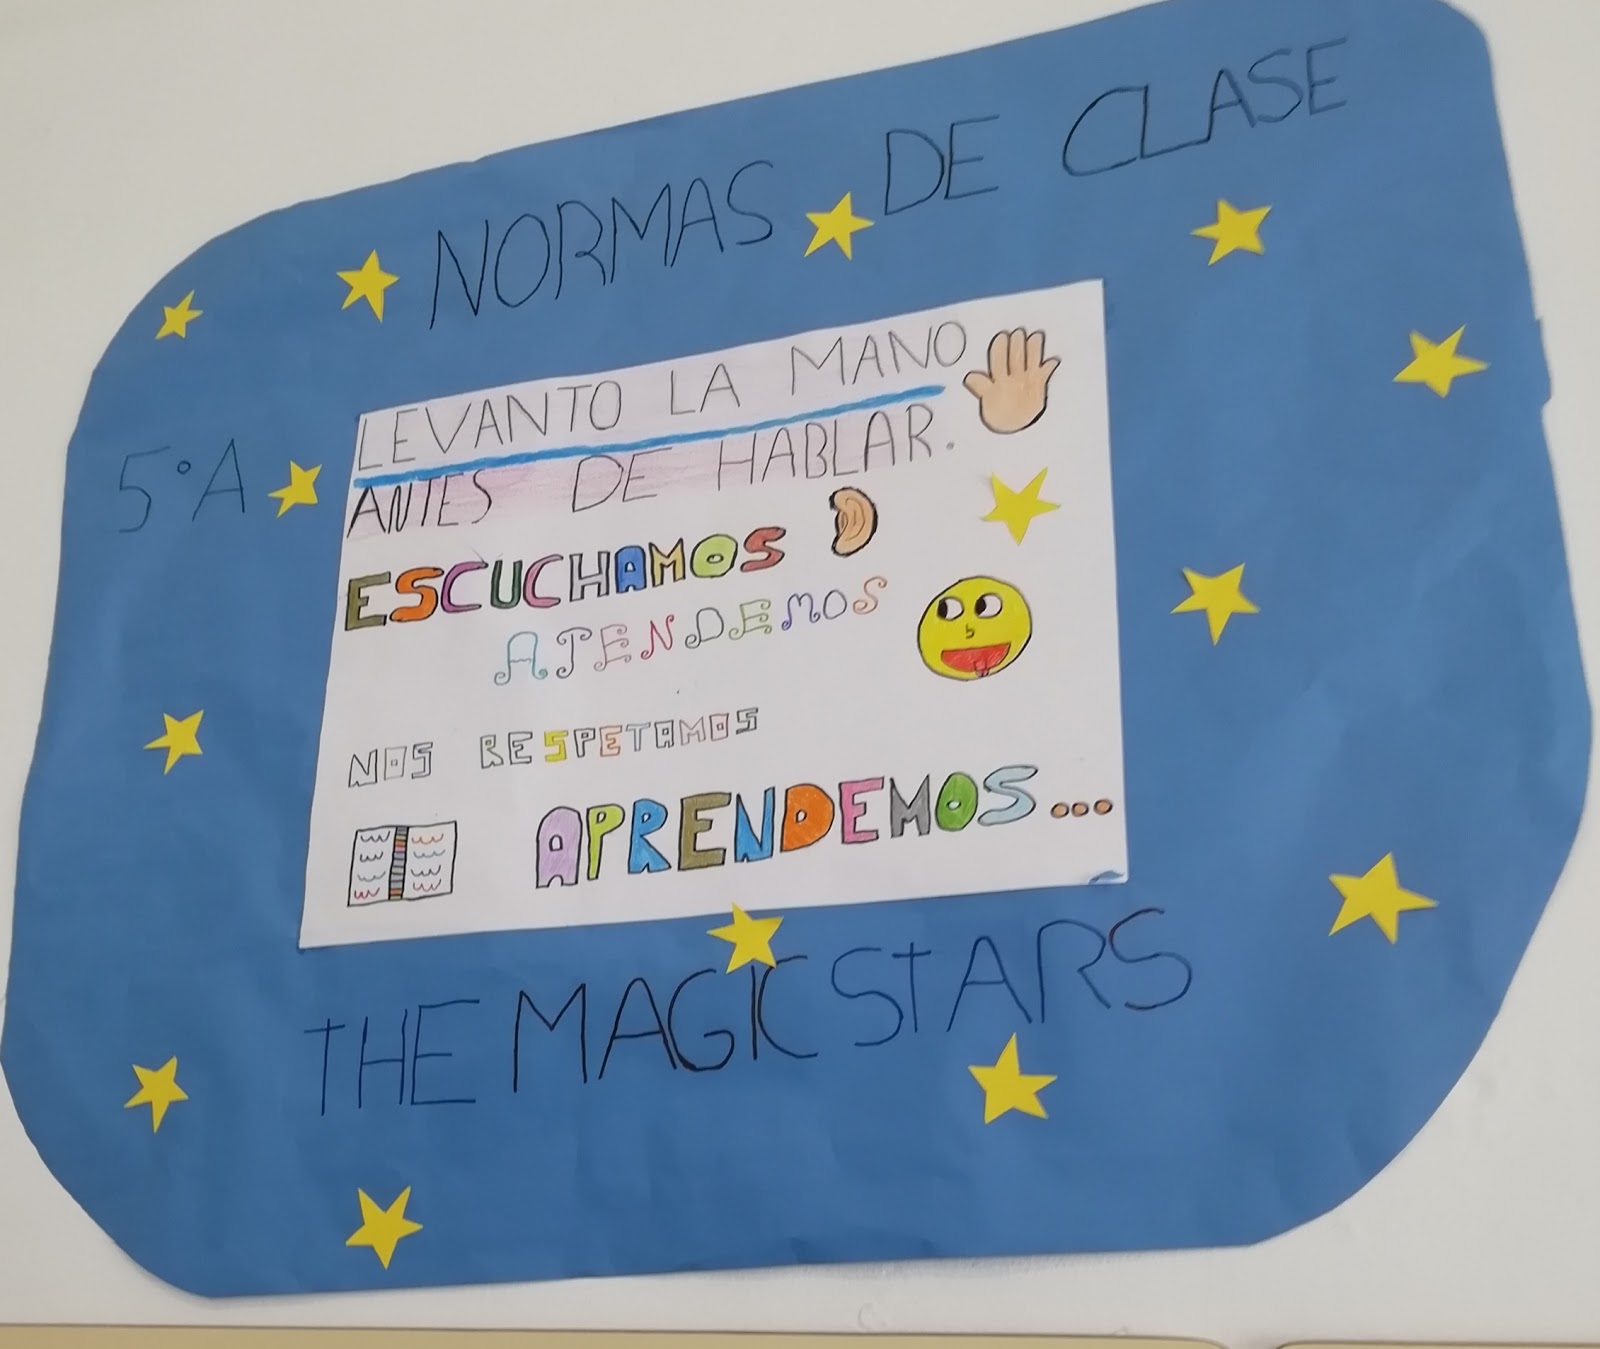 NORMAS DE CLASE
5°A
LEVANTO LA MANO
ANTES DE HABLAR.
ESCUCHAMOS
ATENDEMOS
NOS RESPETAMOS
APRENDEMOS...
THE MAGIC STARS